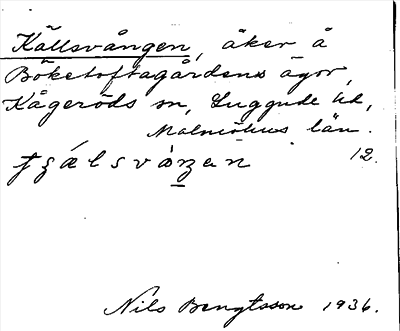 Källsvången, åker å
Böketoftagårdens ägor,
Kågeröds sn, Luggude hd,
Malmöhus län.
12.
Nils Bengtsson 1936.